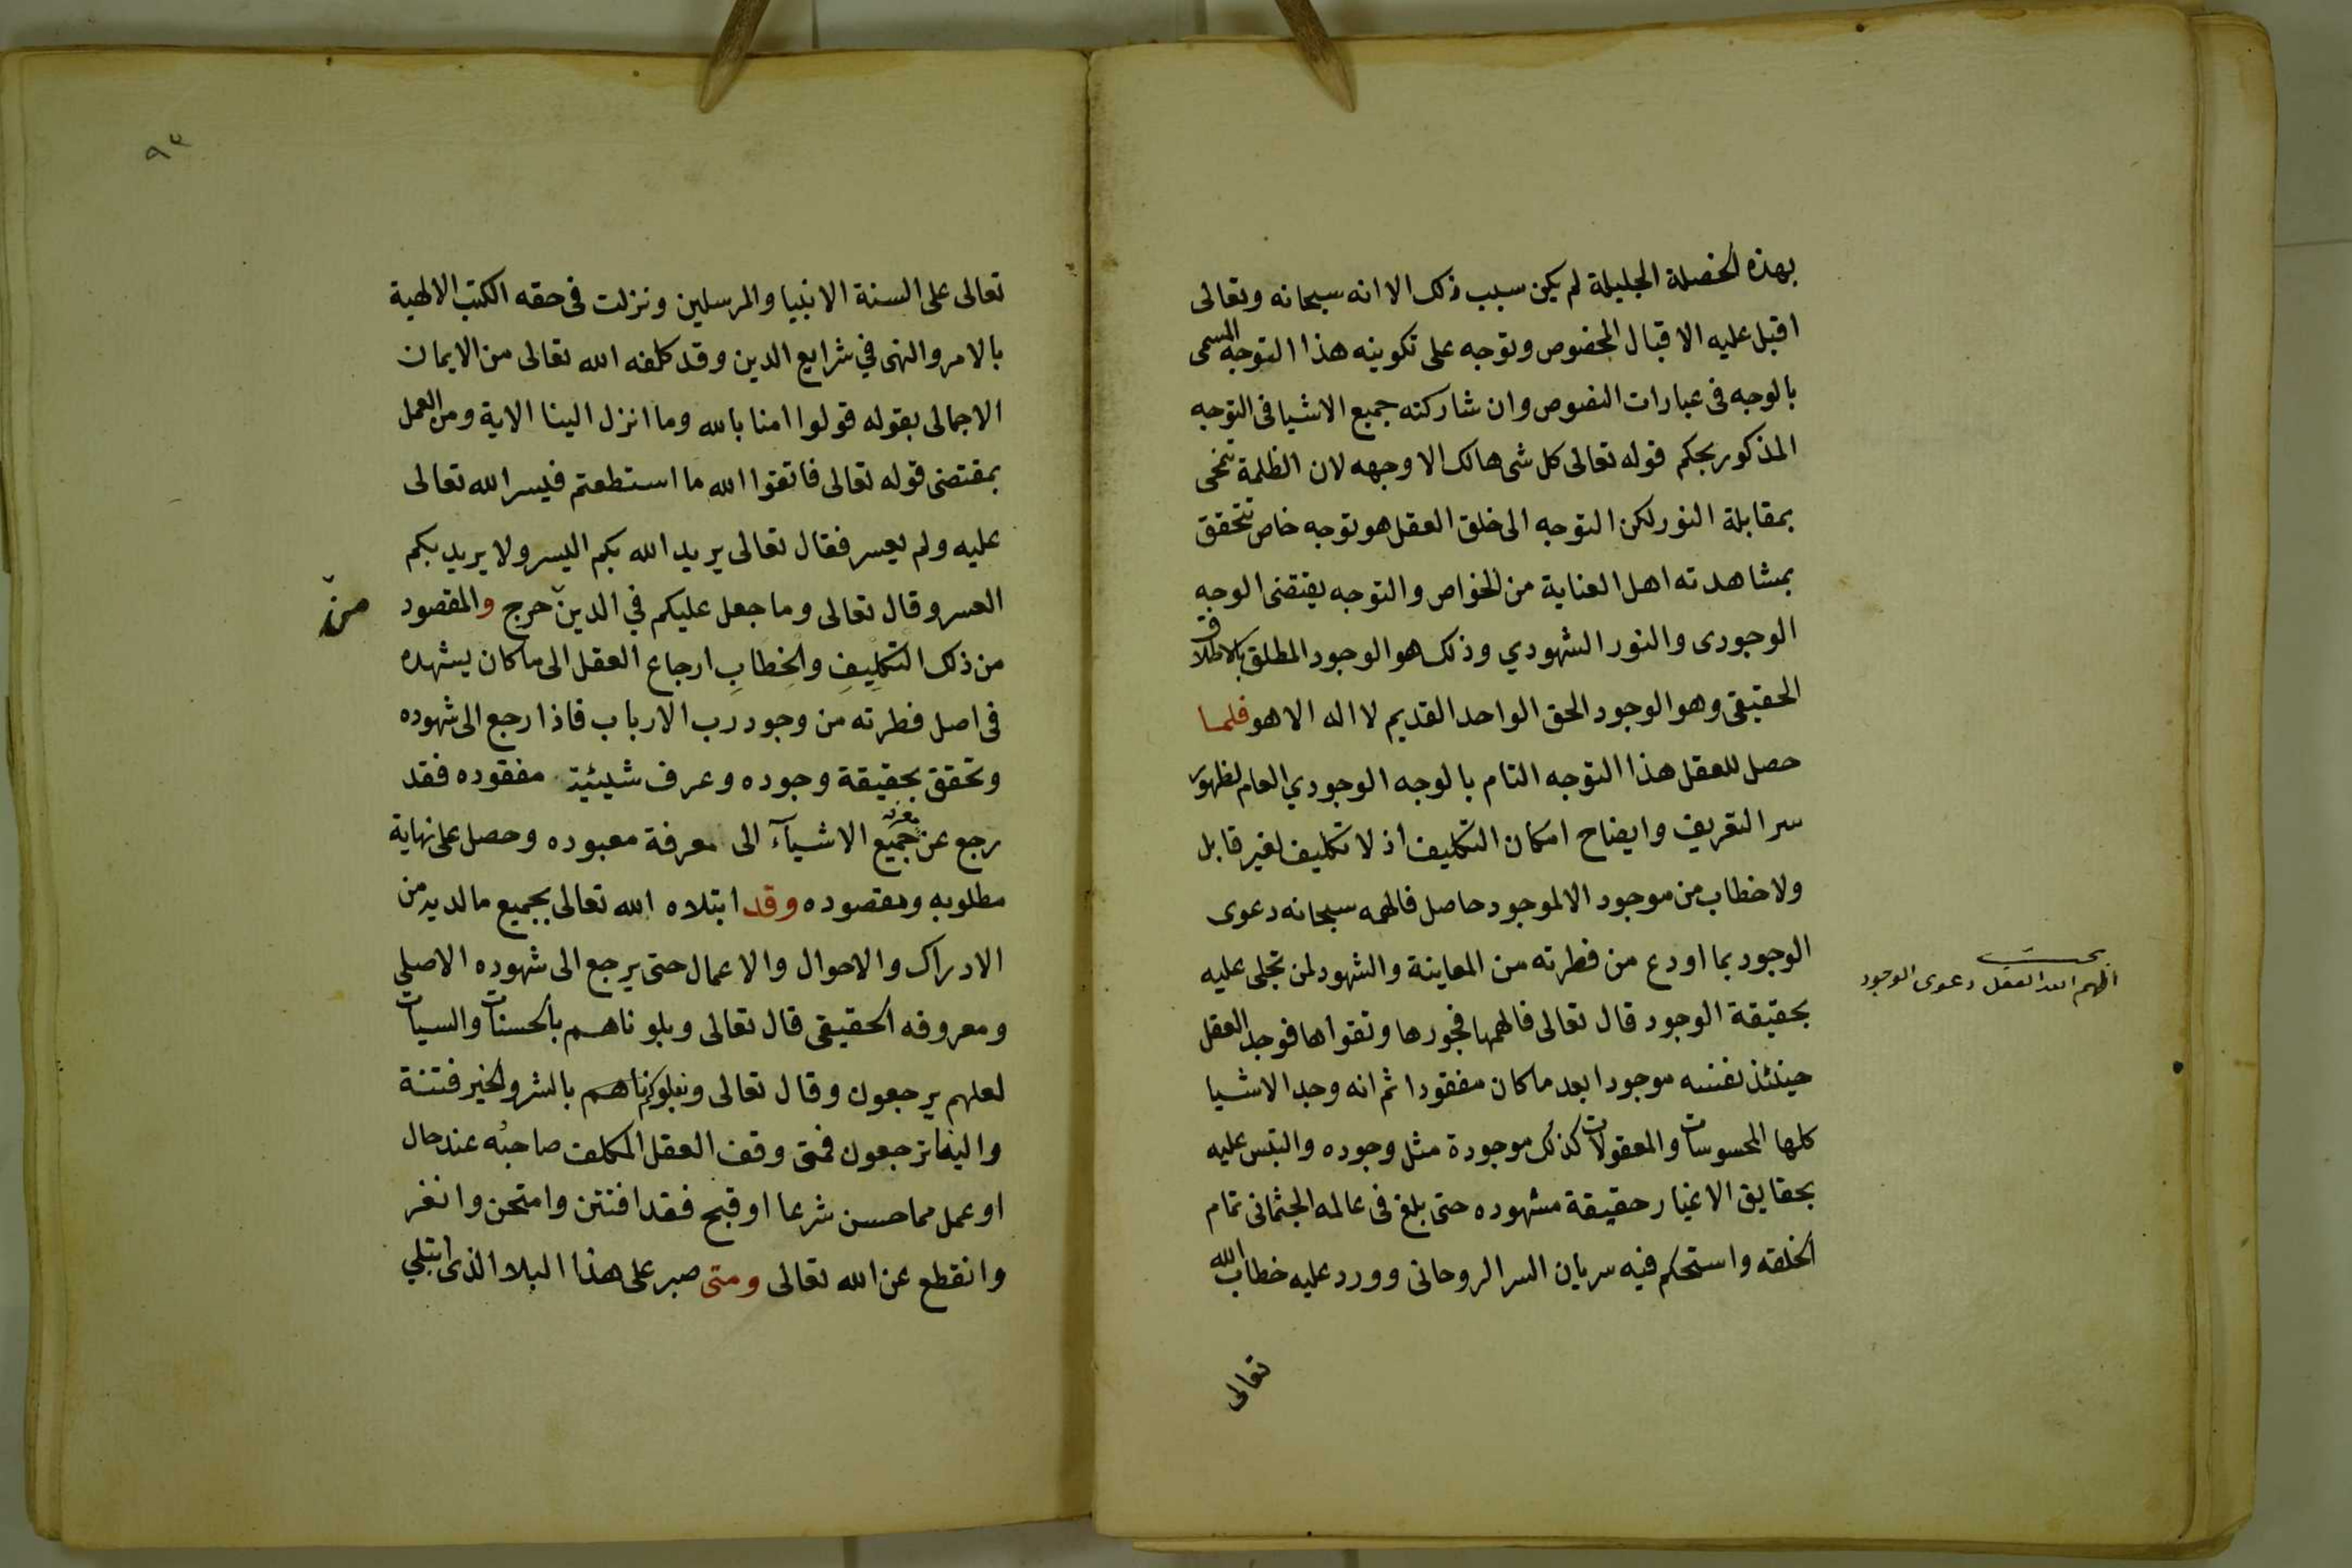 بهذه الخصلة الجليلة لم يكن سبب ذلك الا انه سبحانه وتعالى
اقبل عليه الاقبال المخصوص وتوجه على تكوينه هذا التوجه المسمى
بالوجه فى عبارات النصوص وان شاركته جميع الاشيا فى التوجه
المذكور بحكم قوله تعالى كل شى هالك الا وجهه لان الظلمة تنمحى
بمقابلة النور لكن التوجه الى خلق العقل هو توجه خاص تتحقق
بمشاهدته اهل العناية من الخواص والتوجه يقتضى الوجه
الوجودى والنور الشهودي وذلك هو الوجود المطلق بالاطلاق
الحقيقى وهو الوجود الحق الواحد القديم لا اله الا هو فلما
حصل للعقل هذا التوجه التام بالوجه الوجودي العام لظهور
سر التعريف وايضاح امكان التكليف اذ لا تكليف لغير قابل
ولا خطاب من موجود الا لموجود حاصل فالهمه سبحانه دعوى
الوجود بما اودع من فطرته من المعاينة والشهود لمن تجلى عليه
بحقيقة الوجود قال تعالى فالهمها فجورها وتقواها فوجد العقل
حينئذ نفسه موجودا بعد ما كان مفقودا ثم انه وجد الاشيا
كلها المحسوسات والمعقولات كذلك موجودة مثل وجوده والتبس عليه
بحقايق الاغيار حقيقة مشهوده حتى بلغ فى عالمه الجثمانى تمام
الخلقه واستحكم فيه سريان السر الروحانى وورد عليه خطاب الله
تعالى
الهم الله العقل دعوى الوجود
٩٣
تعالى على السنة الانبيا والمرسلين ونزلت فى حقه الكتب الالهية
بالامر والنهى في شرايع الدين وقد كلفه الله تعالى من الايمان
الاجمالى بقوله قولوا امنا بالله وما انزل الينا الاية ومن العمل
بمقتضى قوله تعالى فاتقوا الله ما استطعتم فيسر الله تعالى
عليه ولم يعسر فقال تعالى يريد الله بكم اليسر ولا يريد بكم
العسر وقال تعالى وما جعل عليكم في الدين حرج والمقصود
من
من ذلك التكليفِ والخِطابِ ارجاع العقل الى ما كان يشهده
فى اصل فطرته من وجود رب الارباب فاذا رجع الى شهوده
وتحقق بحقيقة وجوده وعرف شيئية مفقوده فقد
رجع عن جميع الاشيآء الى معرفة معبوده وحصل على نهاية
مطلوبه ومقصوده وقد ابتلاه الله تعالى بجميع ما لديه من
الادراك والاحوال والاعمال حتى يرجع الى شهوده الاصلي
ومعروفه الحقيقى قال تعالى وبلوناهم بالحسنات والسيات
لعلهم يرجعون وقال تعالى ونبلوكم ناهم بالشر والخير فتنة
والينا ترجعون فمتى وقف العقل المكلف صاحبُه عند حال
او عمل مما حسن شرعا او قبح فقد افتتن وامتحن وانغر
وانقطع عن الله تعالى ومتى صبر على هذا البلا الذى ابتلي